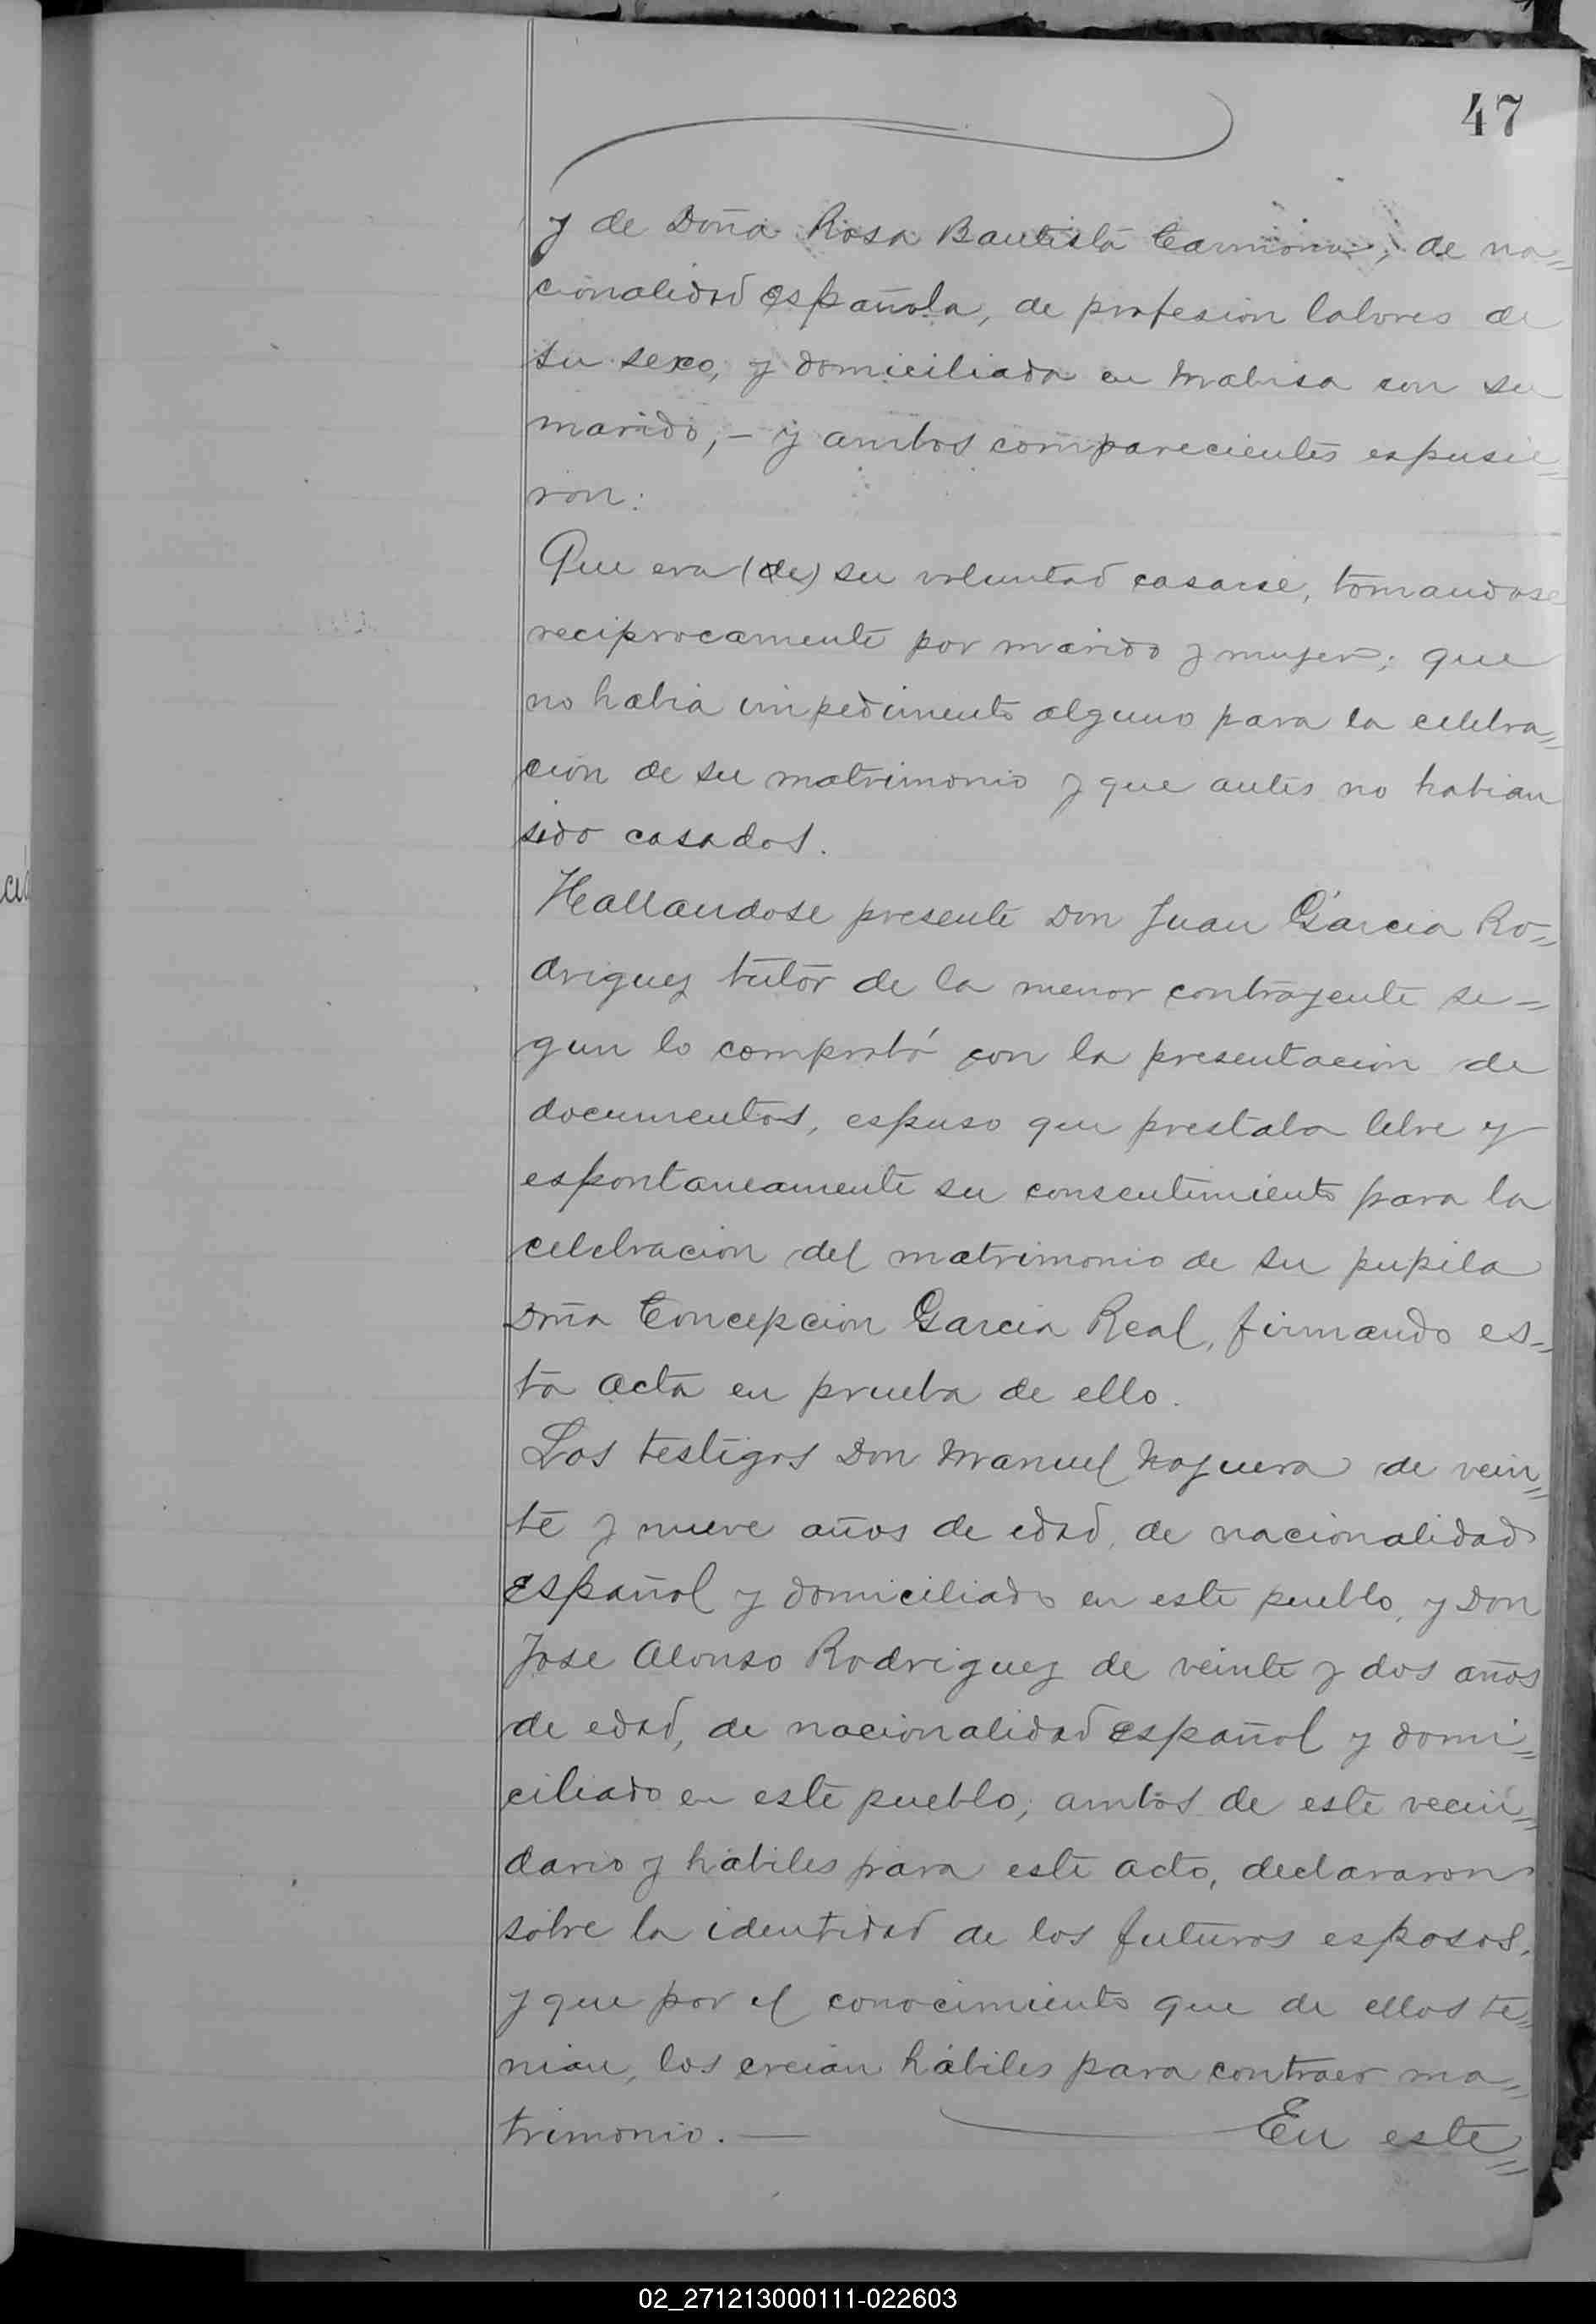 47
y de Doña Rosa Bautista Carmona, de na=
cionalidad española, de profesion labores de
su sexo, y domiciliada en Mabisa con su
marido, – y ambos comparecientes espusie=
ron:
Que era (de) su voluntad casarse, tomandose
reciprocamente por marido y mujer; que
no habia impedimento alguno para la celebra=
cion de su matrimonio y que antes no habian
sido casados.
Hallandose presente Don Juan Garcia Ro=
driguez tutor de la menor contrayente se=
gun lo comprobó con la presentacion de
documentos, espuso que prestaba libre y
espontaneamente su consentimiento para la
celebracion del matrimonio de su pupila
Dña Concepcion Garcia Real, firmando es=
ta acta en prueba de ello.
Los testigos Don Manuel Noguera de vein=
te y nueve años de edad, de nacionalidad
español y domiciliado en este pueblo, y Don
Jose Alonso Rodriguez de veinte y dos años
de edad, de nacionalidad español y domi=
ciliado en este pueblo; ambos de este vecin=
dario y hábiles para este acto, declararon
sobre la identidad de los futuros esposos,
y que por el conocimiento que de ellos te=
nian, los creian hábiles para contraer ma=
trimonio. — En este=
02_271213000111-022603